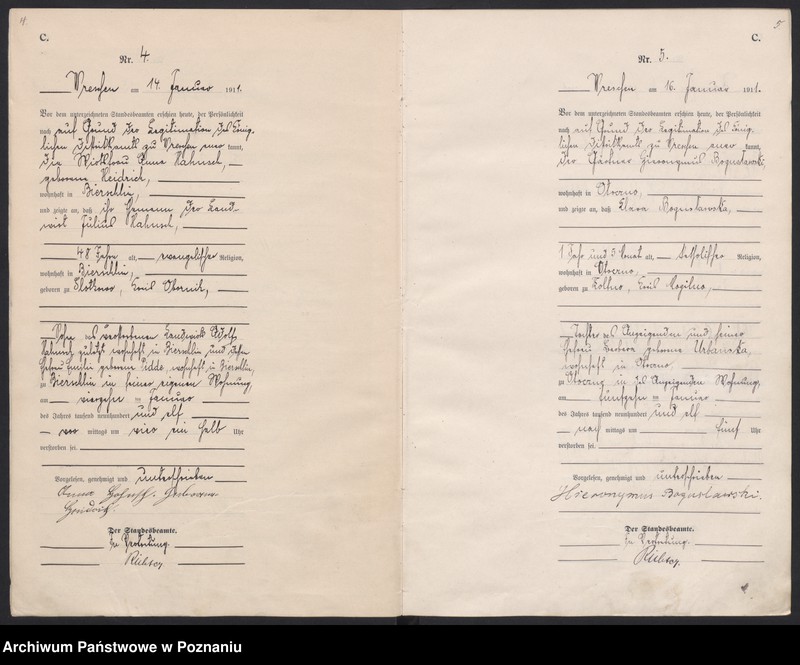 4.
C.
Nr. 4.
Wreschen am 14. Januar 1911.
Vor dem unterzeichneten Standesbeamten erschien heute, der Persönlichkeit
nach auf Grund der Legitimation des König-
lichen Distriktamts zu Wreschen kannt,
die Anna Hahnsch,
geborene Heidrich,
wohnhaft in Bierschlin,
und zeigte an, daß ihr Ehemann, der Land-
wirt Julius Hahnsch,
48 Jahre alt, evangelischer Religion,
wohnhaft in Bierschlin,
geboren zu Kreis
Sohn des verstorbenen Landwirts Adolf
Hahnsch zuletzt wohnhaft in Bierschlin und dessen
Ehefrau geborene wohnhaft in Bierschlin,
zu Bierschlin in seiner eigenen Wohnung,
am vierzehn ten Januar
des Jahres tausend neunhundert und elf
vor mittags um ein halb Uhr
verstorben sei.
Vorgelesen, genehmigt und unterschrieben
Anna geborene
Der Standesbeamte.
In Vertretung.
5.
C.
Nr. 5.
Wreschen am 16. Januar 1911.
Vor dem unterzeichneten Standesbeamten erschien heute, der Persönlichkeit
nach auf Grund der Legitimation des König-
lichen Distriktamts zu Wreschen kannt,
der Gärtner Hieronymus Boguslawski,
wohnhaft in Otoczno,
und zeigte an, daß Klara Boguslawska,
1 Jahr und 3 Monat alt, katholischer Religion,
wohnhaft in Otoczno,
geboren zu Kreis Mogilno,
Tochter des Anzeigenden und seiner
Ehefrau Barbara geborene Urbanska,
wohnhaft in Otoczno,
zu Otoczno in des Anzeigenden Wohnung,
am fünfzehn ten Januar
des Jahres tausend neunhundert und elf
nach mittags um fünf Uhr
verstorben sei.
Vorgelesen, genehmigt und unterschrieben
Hieronymus Boguslawski.
Der Standesbeamte.
In Vertretung.
Archiwum Państwowe w Poznaniu